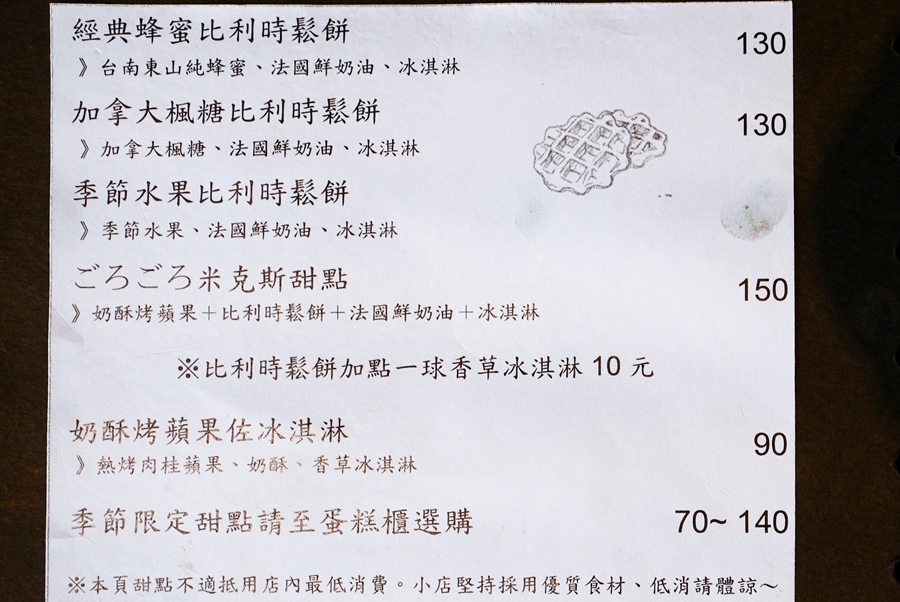 經典蜂蜜比利時鬆餅 130
》台南東山純蜂蜜、法國鮮奶油、冰淇淋
加拿大楓糖比利時鬆餅 130
》加拿大楓糖、法國鮮奶油、冰淇淋
季節水果比利時鬆餅
》季節水果、法國鮮奶油、冰淇淋
ごろごろ米克斯甜點 150
》奶酥烤蘋果＋比利時鬆餅＋法國鮮奶油＋冰淇淋
※比利時鬆餅加點一球香草冰淇淋 10 元
奶酥烤蘋果佐冰淇淋 90
》熱烤肉桂蘋果、奶酥、香草冰淇淋
季節限定甜點請至蛋糕櫃選購 70~ 140
※本頁甜點不適抵用店內最低消費。小店堅持採用優質食材、低消請體諒～